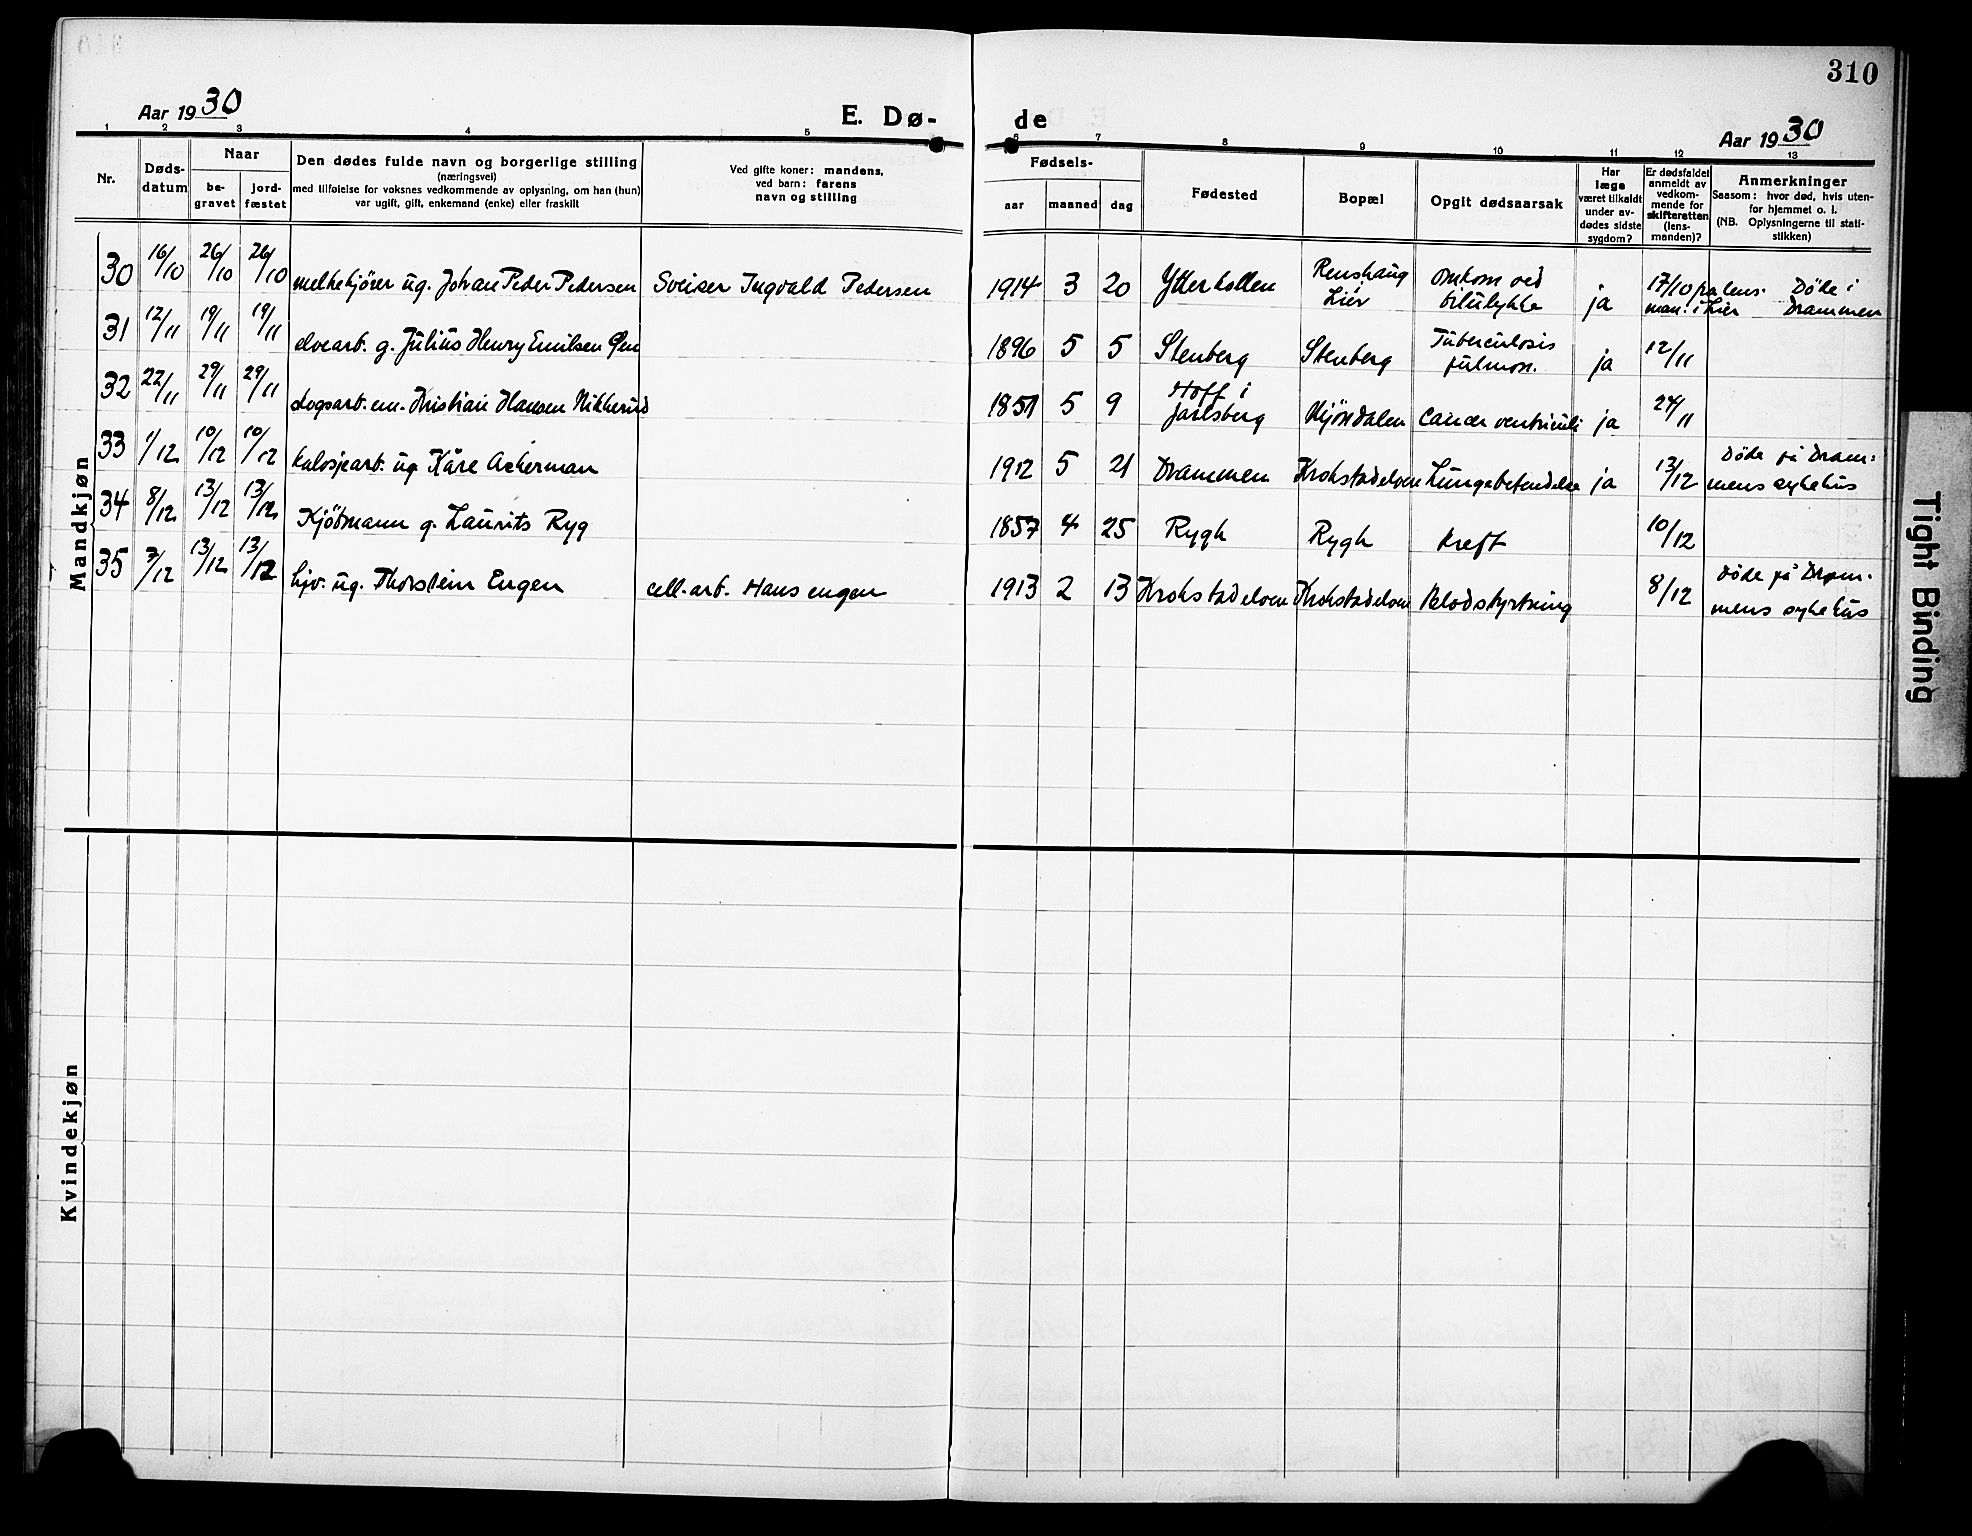 310
Aar 1930
E. Dø-
de
Aar 1930
1 2 3 4 5 6 7 8 9 10 11 12 13
Nr.
Døds-
datum
Naar
be-
gravet
jord-
fæstet
Den dødes fulde navn og borgerlige stilling
(næringsvei)
med tilføielse for voksnes vedkommende av oplysning, om han (hun)
var ugift, gift, enkemand (enke) eller fraskilt
Ved gifte koner: mandens,
ved barn: farens
navn og stilling
Fødsels-
aar
maaned
dag
Fødested
Bopæl
Opgit dødsaarsak
Har
læge
været tilkaldt
under av-
dødes sidste
sygdom?
Er dødsfaldet
anmeldt av
vedkom-
mende for
skifteretten
(lens-
manden)?
Anmerkninger
Saasom: hvor død, hvis uten-
for hjemmet o. l.
(NB. Oplysningerne til stati-
stikken)
Mandkjøn
30 16/10 26/10 26/10 melkekjører ug. Johan Peder Pedersen Sveiser Ingvald Pedersen 1914 3 20 Ytterkollen Renskaug Lier Omkom ved bilulykke ja 17/10 på lens. man. i Lier Døde i Drammen
31 12/11 19/11 19/11 elvearb. g. Julius Henry Emilsen 1896 5 5 Stenberg Stenberg Tuberculosis pulmon. ja 12/11
32 22/11 29/11 29/11 Hansen Nikkerud 1851 5 9 Hoff i Jarlsberg Mjøndalen Cancer ventriculi ja 24/11
33 1/12 10/12 10/12 kalosjearb. ug. Kåre Ackerman 1912 5 21 Drammen Krokstadelven Lungebetendelse ja 13/12 Døde på Dram-
mens sykehus
34 8/12 13/12 13/12 Kjøbmann g. Laurits Ryg 1857 4 25 Rygh Rygh Kreft 10/12
35 7/12 13/12 13/12 hjv. ug. Thorstein Engen cell.arb. Hans engen 1913 2 13 Krokstadelven Krokstadelven Blodstyrtning 8/12 Døde på Dram-
mens sykehus
Kvindekjøn
Tight Binding